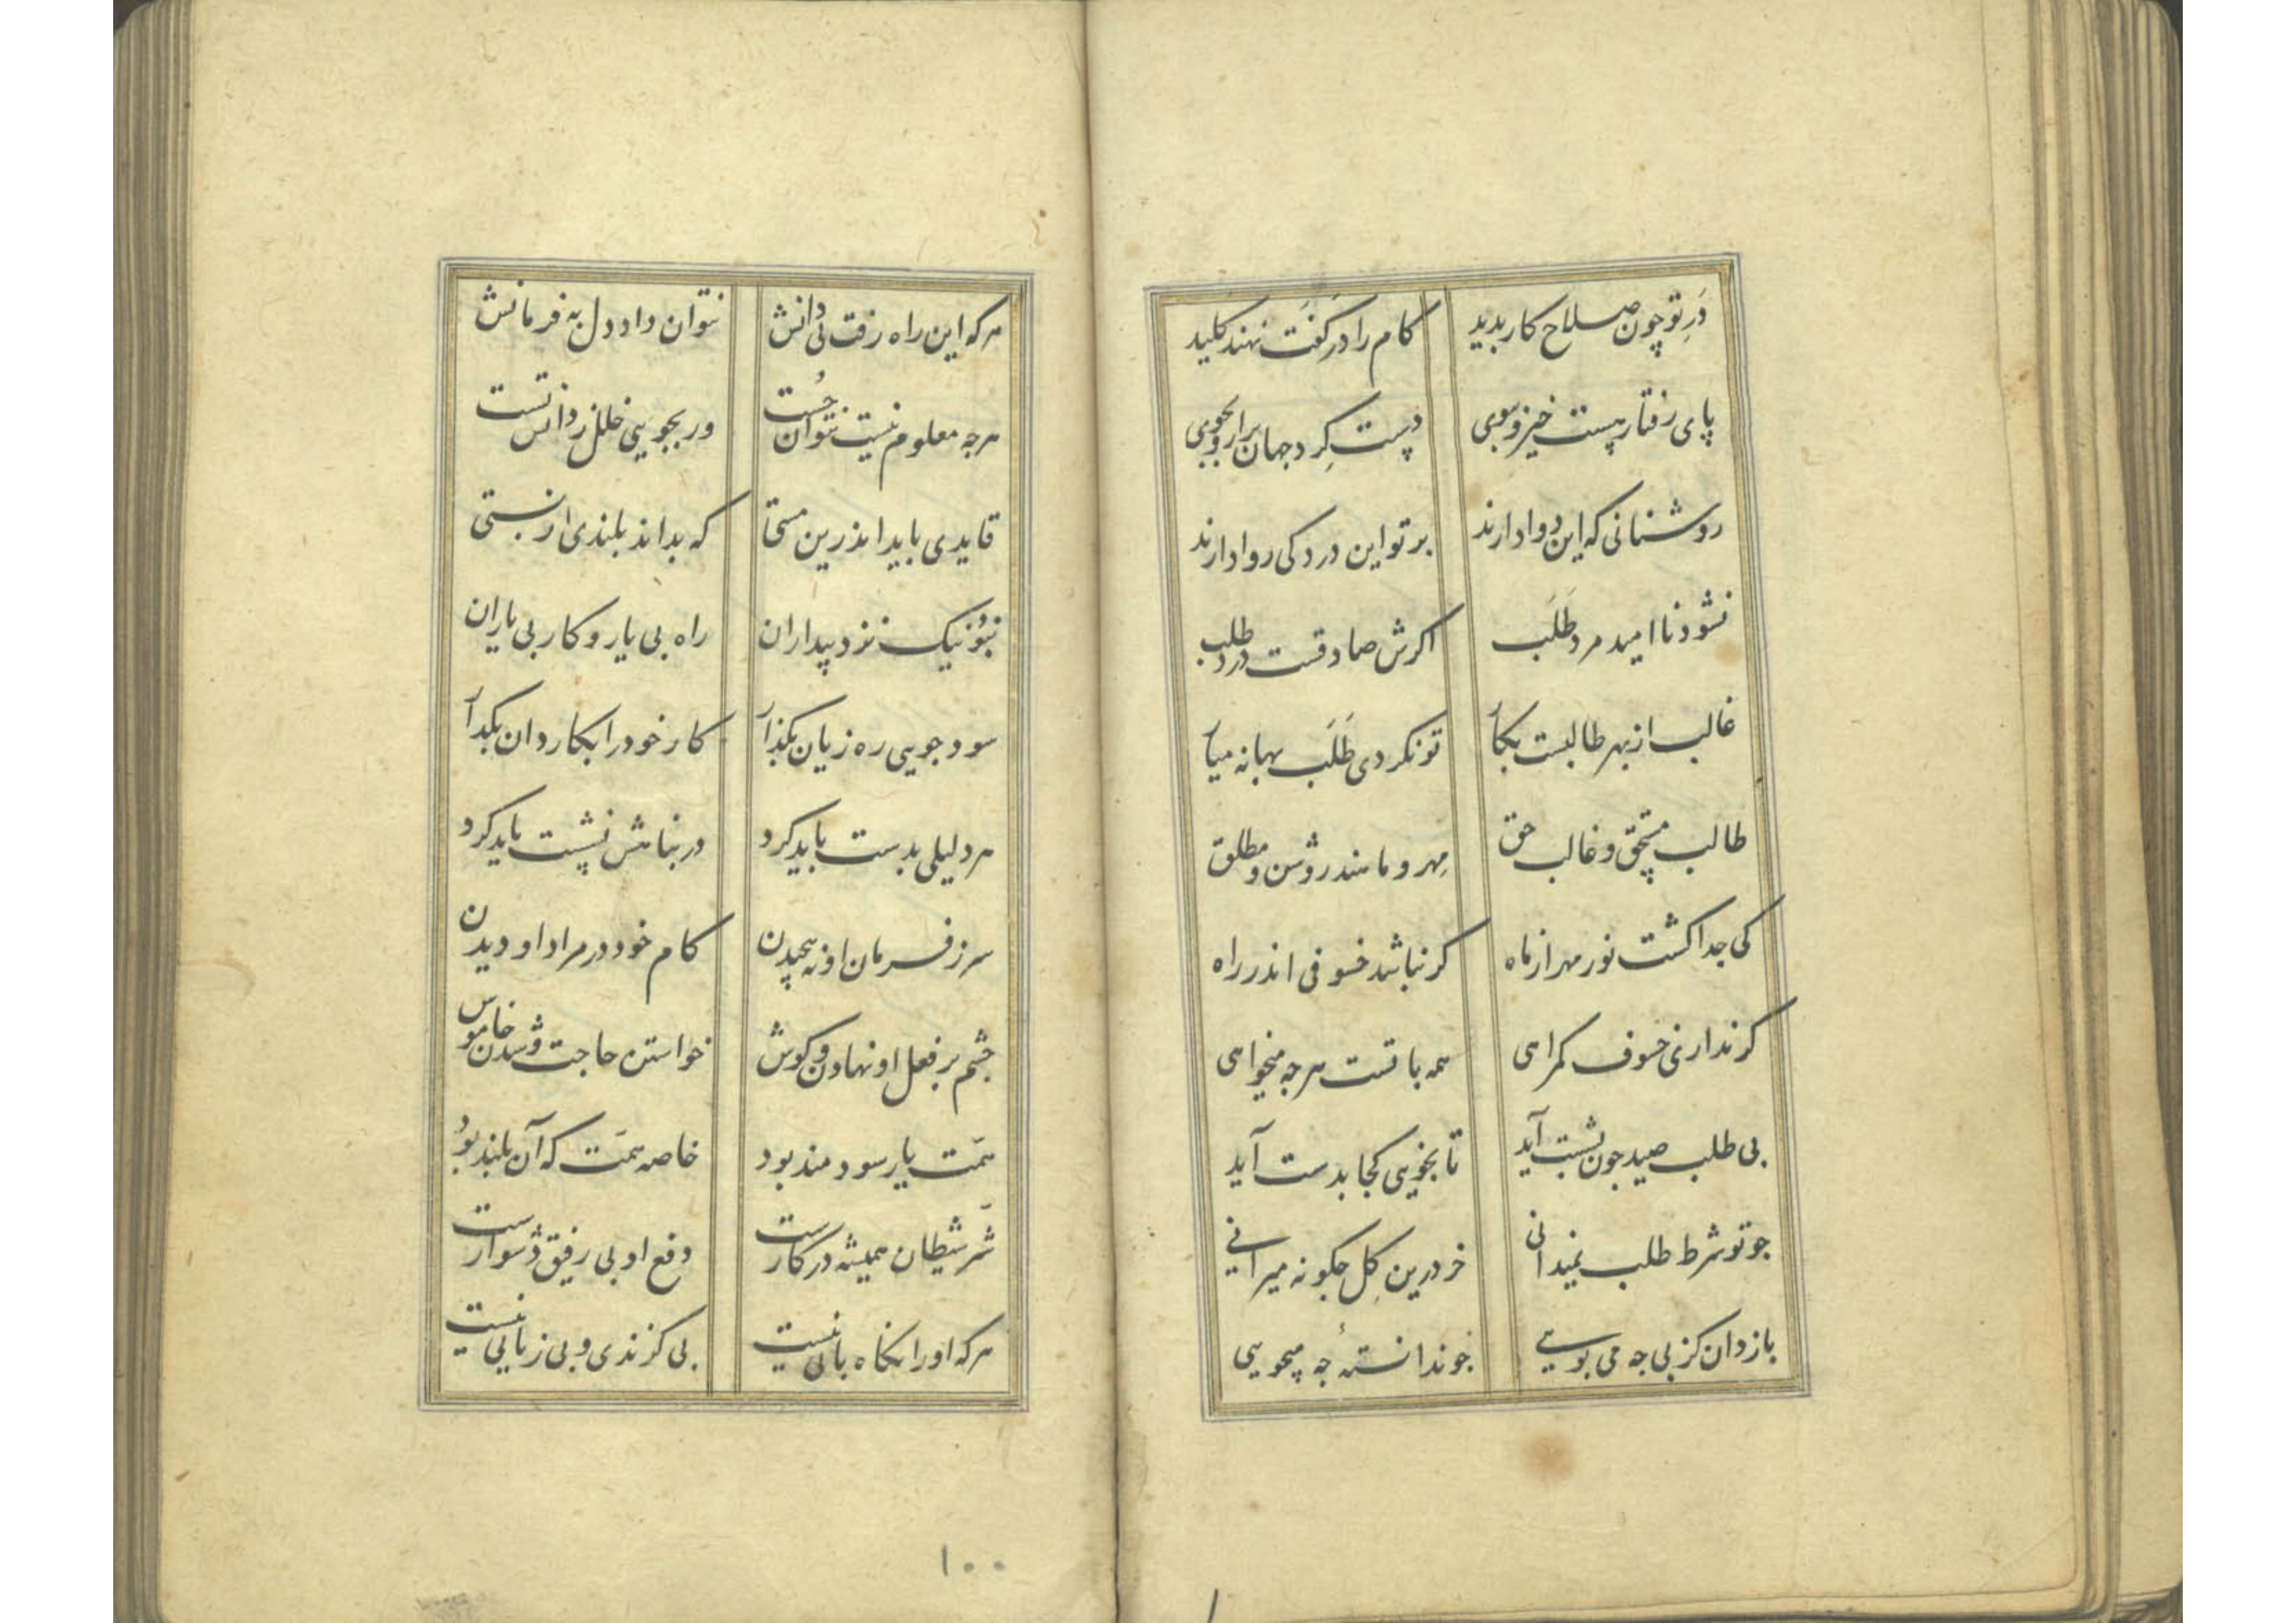 دَرِ تو چون صلاح کار بدید کام را در کَفَت نهند کلید
پای رفتار هست خیز و بپوی دست کِرد جهان برار و بجوی
روشنانی که این دوا دارند بر تو این درد کی روا دارند
نشود ناامید مرد طَلَب اکرش صادقست درد طلب
غالب از بهر طالبست بکار تو نکردی طَلَب بهانه میار
طالب مستحق و غالب حق مِهر و مانند روشن و مطلق
کی جدا کشت نور مهر از ماه کر نباشد خسوفی اندر راه
کر نداری خسوف کمراهی همه با تست هرجه میخواهی
بی طلب صید جون بشست آید تا نخویی کجا بدست آید
جو تو شرط طلب نمیدانی خر درین کِل جکونه میرانی
بازدان کز بی جه می بویی جو ندانستهٔ جه میجویی
هرکه این راه رفت بی دانش نتوان داد دل به فرمانش
هرجه معلوم نیست نتوان جُست ور بجویی خلل ز دانش تست
قایدی باید اندرین مستی که بداند بلندی از پستی
نبُوَد نیک نزد بیداران راه بی یار و کار بی یاران
سود جویی ره زیان بکذار کار خود را بکاردان بکذار
هر دلیلی بدست باید کرد در بناهش نشست باید کرد
سر ز فرمان او نه پیچیدن کام خود در مراد او دیدن
جشم بر فعل او نهادن و کوش خواستن حاجت و شدن خاموش
همّت یار سودمند بود خاصه همّت که آن بلند بوُد
شرّ شیطان همیشه در کارست دفع او بی رفیق دشوارست
هرکه او را نکاه بانی نیست بی کزندی و بی زیانی نیست
۱۰۰